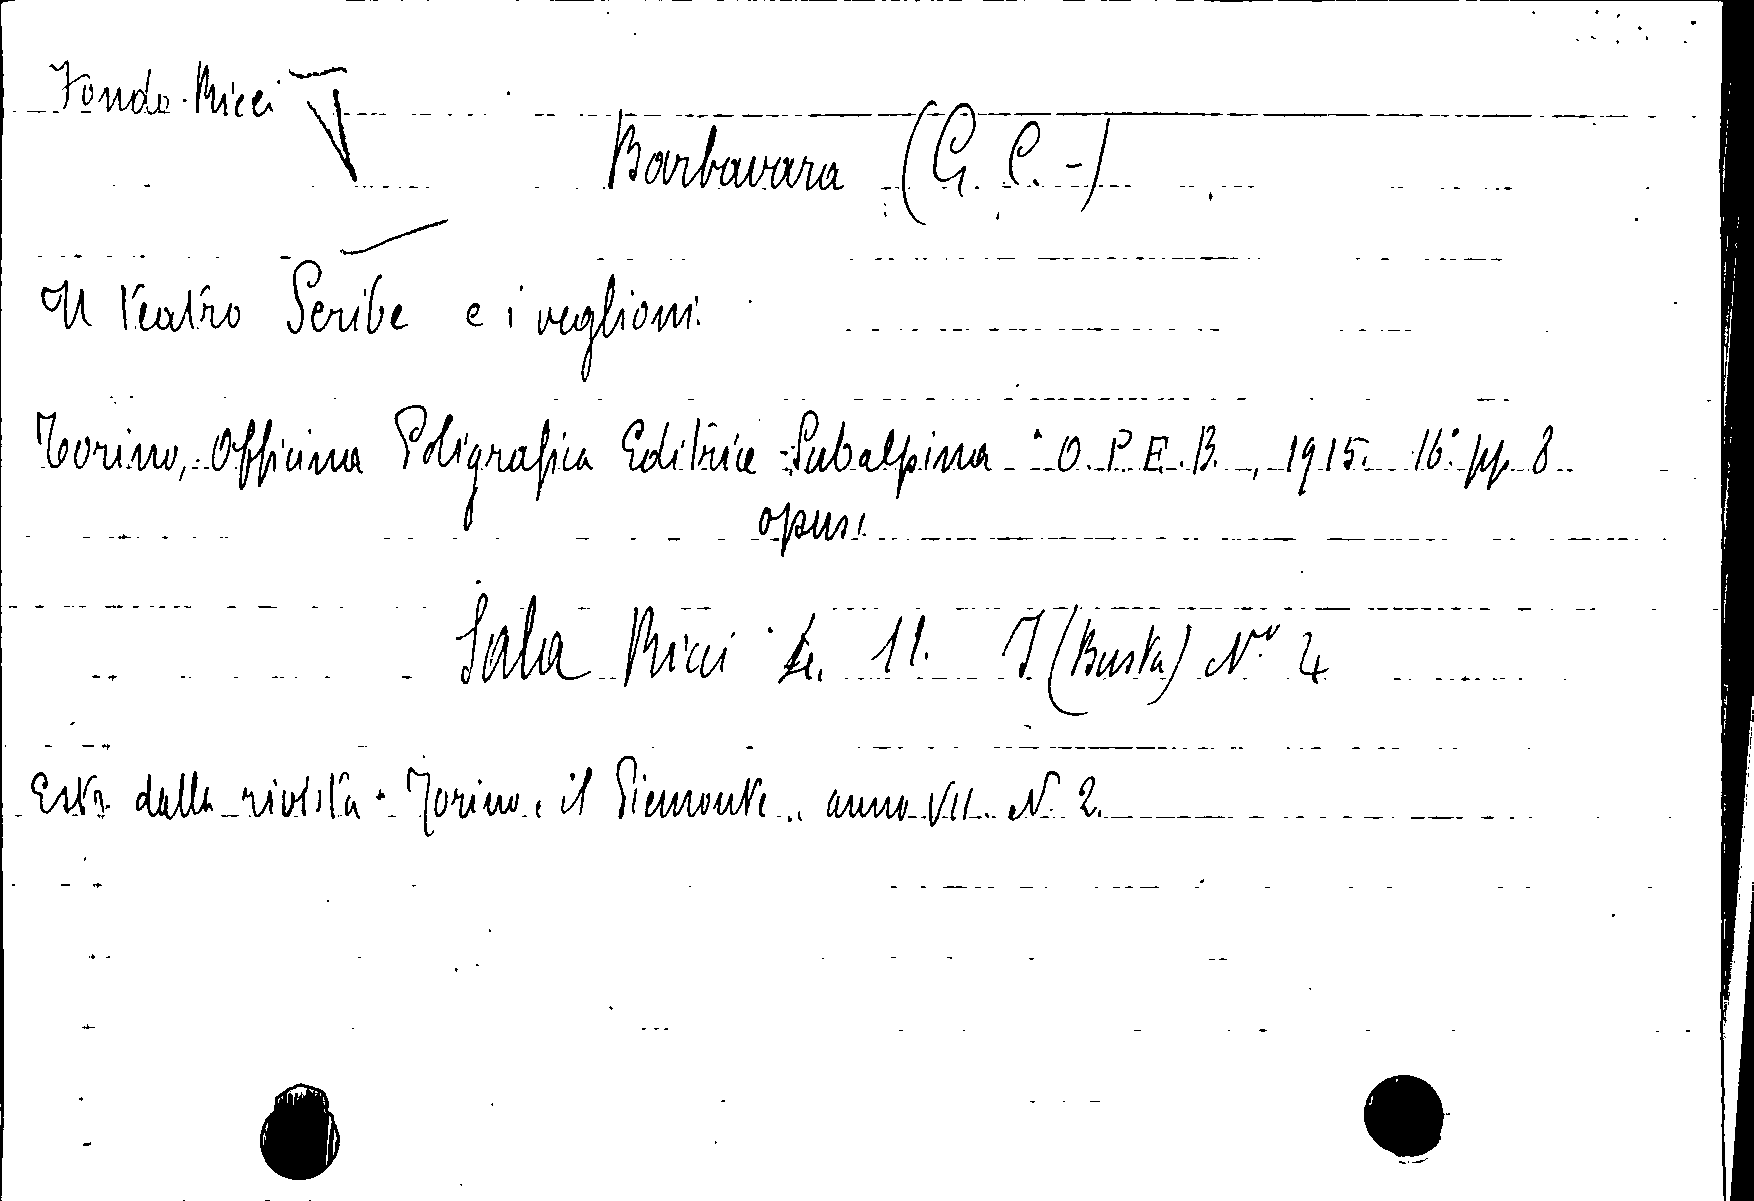 Fondo Ricci
Barbavara (G. C. -)
Il Teatro Scribe e i veglioni.
Torino, Officina Poligrafica Editrice Subalpina O.P.E.S., 1915. 16° pp. 8
opusc.
Sala Ricci 11. I (Busta) N.° 4
Estr. dalla rivista "Torino e il Piemonte" anno VII. N. 2.